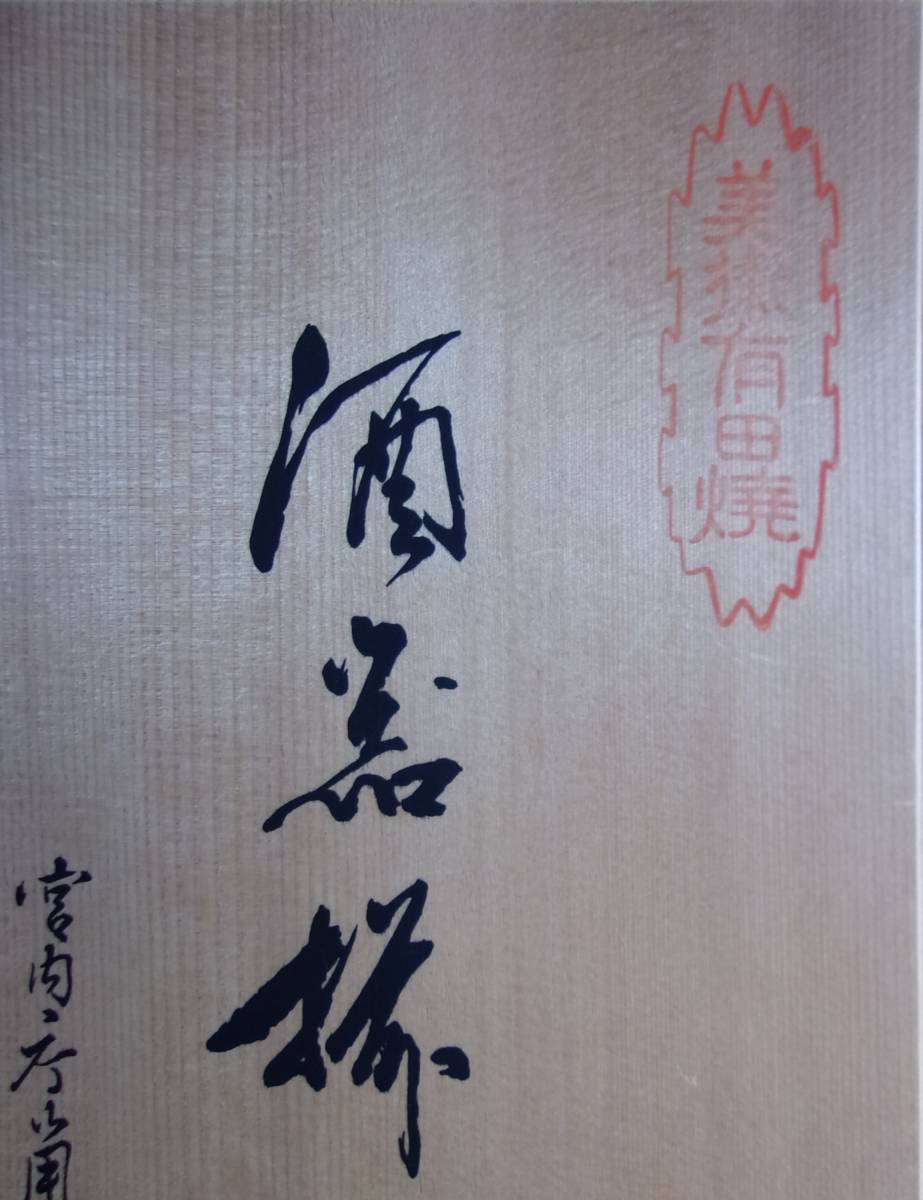 美術有田焼
酒器揃
宮内庁御用